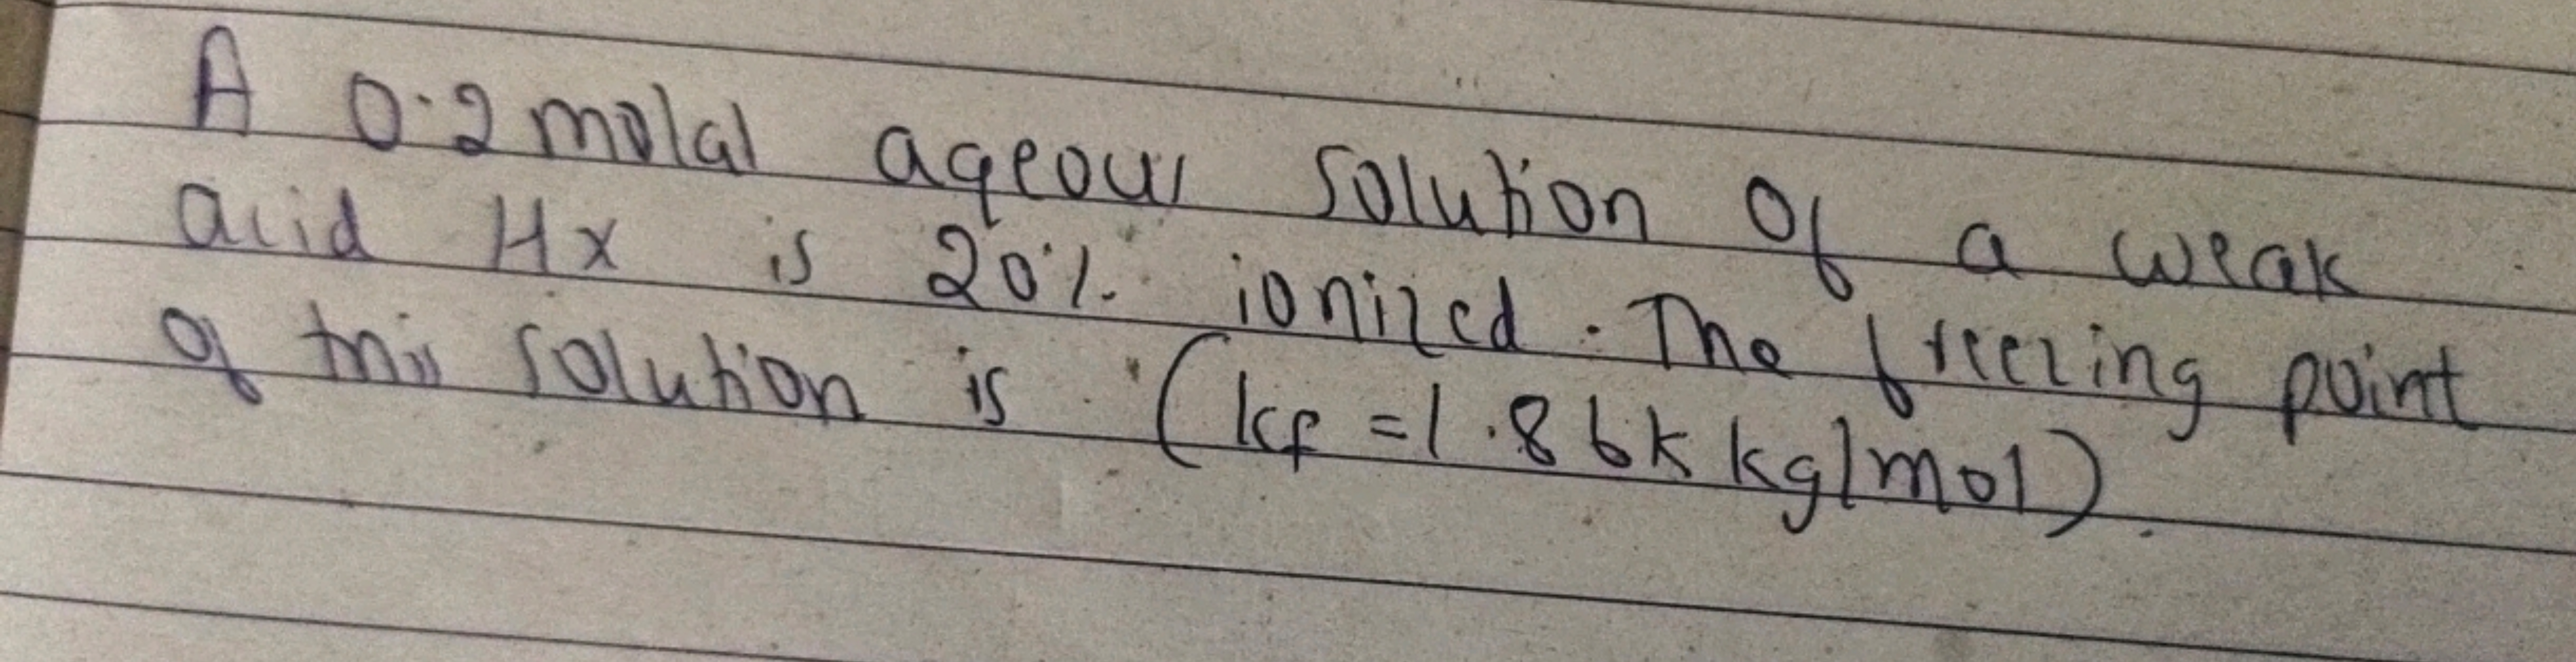 A 0.2 molal aqeous solution of a weak
acid Hx is 20%. ionized. The freezing point
of this solution is (kf = 1.86k kg/mol).